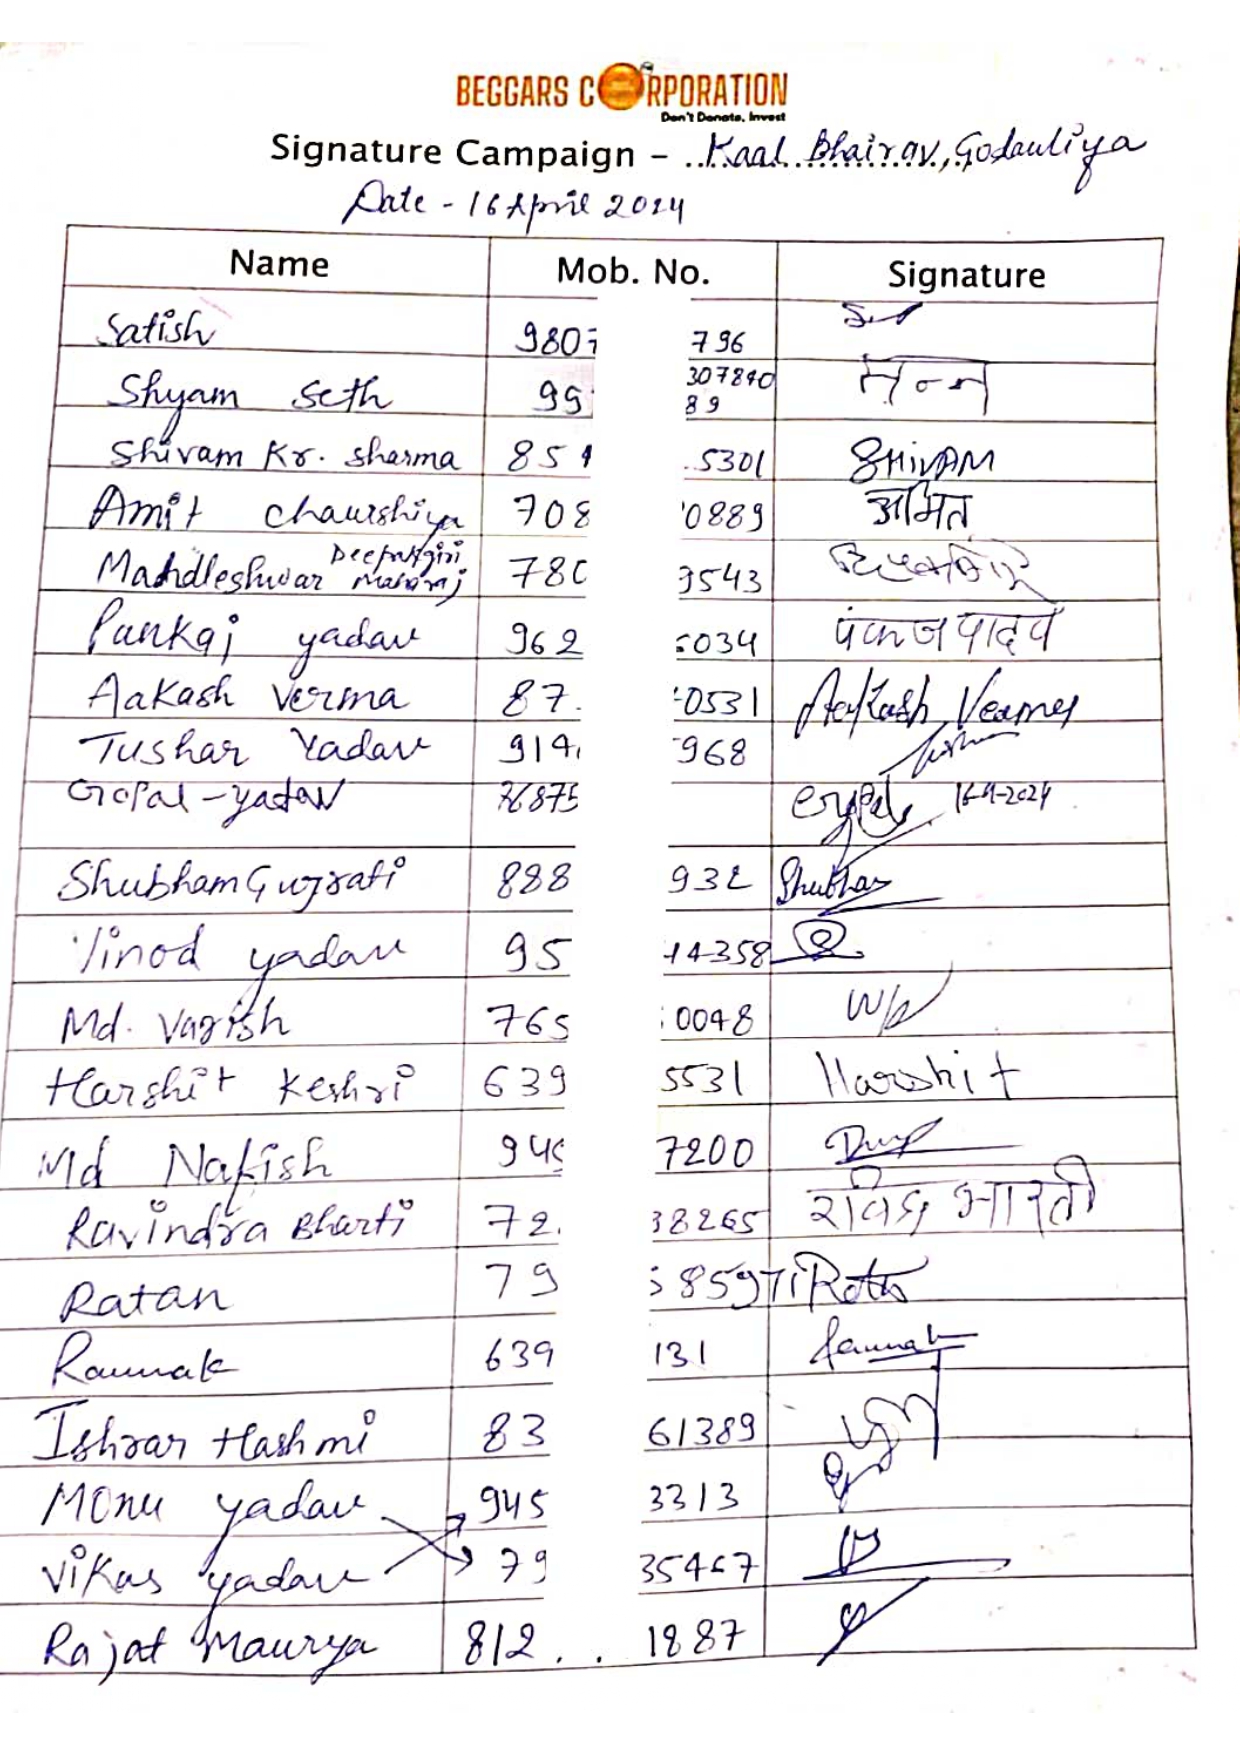 BEGGARS CORPORATION
Don't Donate, Invest
Signature Campaign - Kaal Bhairav, Godauliya
Date - 16 April 2024
Name Mob. No. Signature
Satish 980 796
Shyam Seth 99 307840
89
Shivam Kr. Sharma 851 5301 SHIVAM
Amit Chaurshiya 708 0889 अमित
Deepakgiri
Mahdleshwar Maharaj 780 9543
Pankaj yadav 962 034 पंकज यादव
Aakash Verma 87 0531 Aakash Verma
Tushar Yadav 914 968
Gopal-yadav 76875 16-4-2024
Shubham Gujrati 888 932 Shubham
Vinod yadav 95 14358
Md. Vagish 765 0048
Harshit Keshri 639 5531 Harshit
Md Nafish 945 7200
Ravindra Bharti 72 38265 रविन्द्र भारती
Ratan 79 85971 Ratan
Raunak 639 131 Raunak
Ishrar Hashmi 83 61389
Monu yadav 945 3313
Vikas yadav 79 35467
Rajat Maurya 812 1887